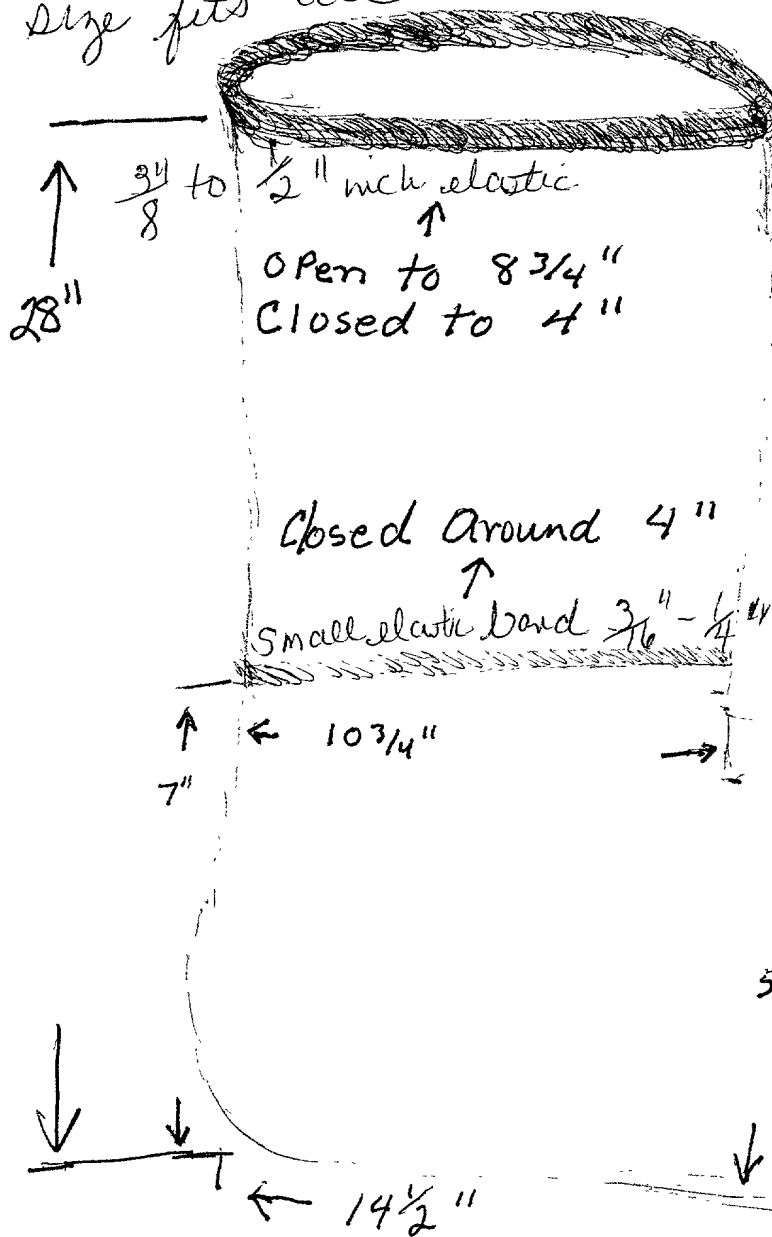 Size fits
3/8" to 1/2" inch elastic
Open to 8 3/4"
Closed to 4"
28"
Closed Around 4"
Small elastic band 3/16" - 1/4"
10 3/4"
7"
5
14 1/2"